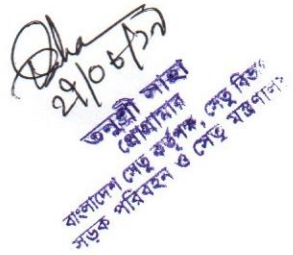 ২৫/০৮/১৯
তনুশ্রী সাহা
প্রোগ্রামার
বাংলাদেশ সেতু কর্তৃপক্ষ, সেতু বিভাগ
সড়ক পরিবহন ও সেতু মন্ত্রণালয়